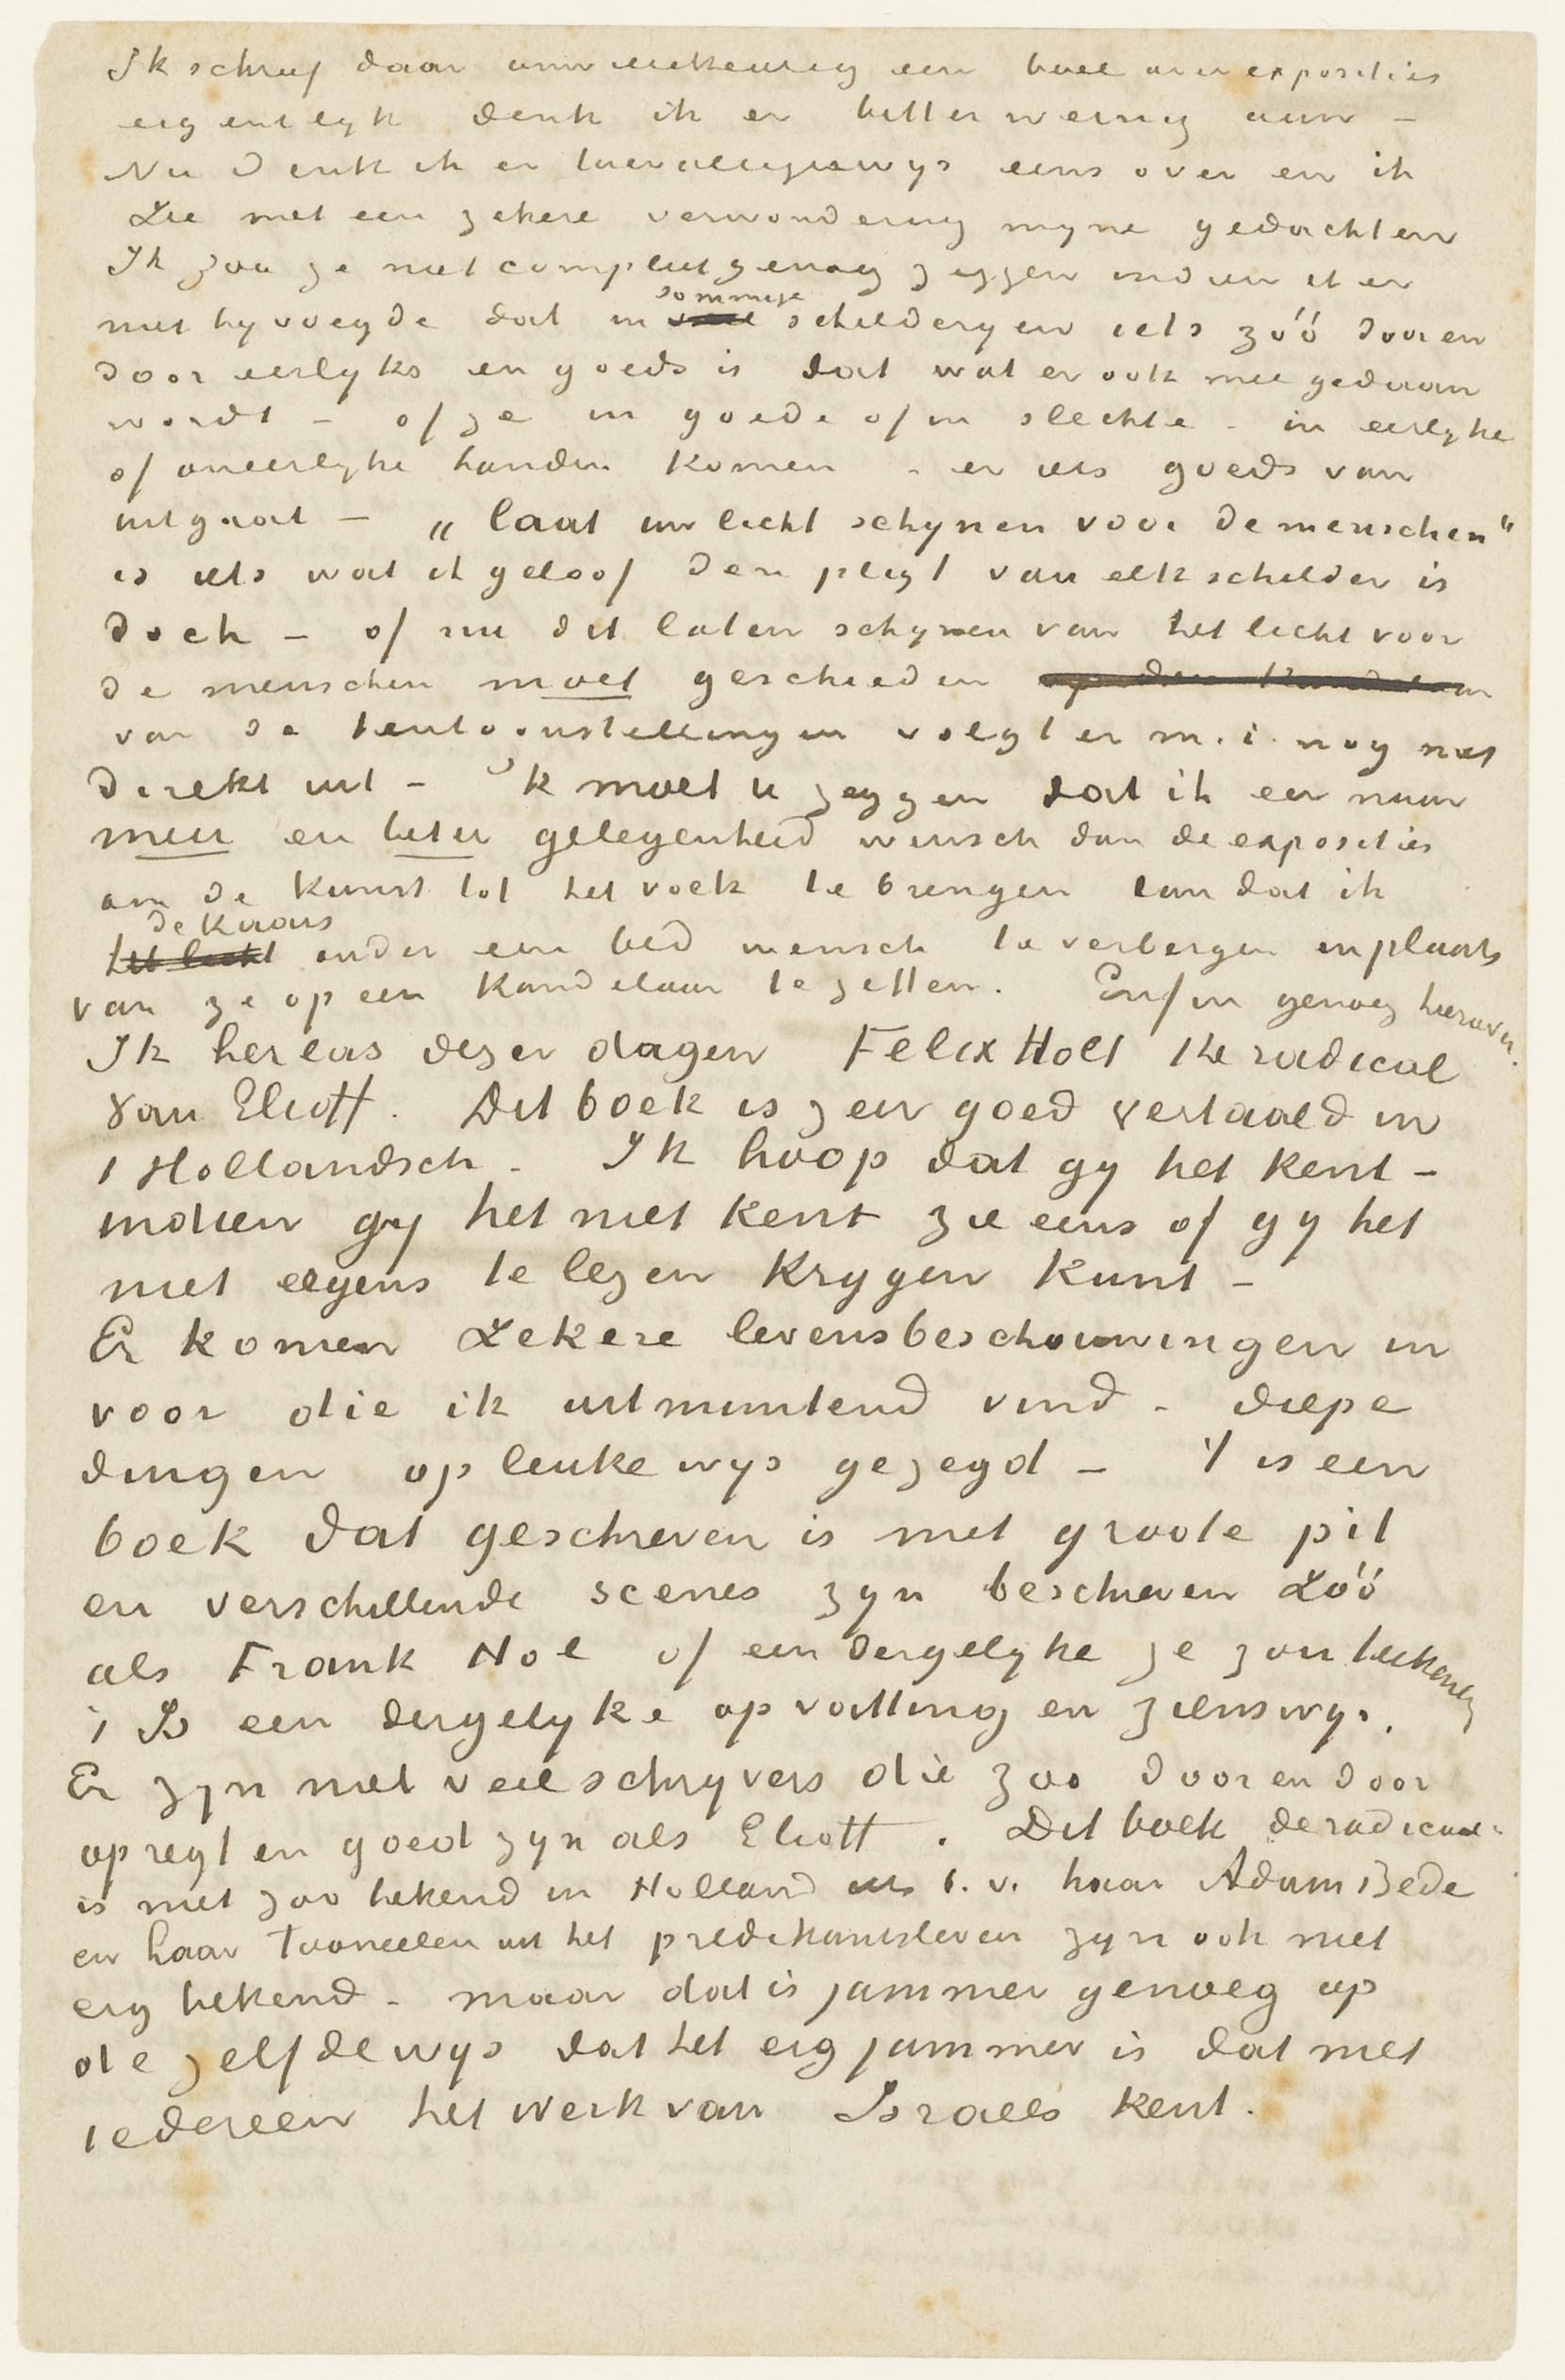 Ik schreef daar onwillekeurig een boel over exposities
eigentlyk denk ik er bitter weinig aan –
Nu denk ik er toevalligerwys eens over en ik
Zie met een zekere verwondering myne gedachten
Ik zou ze niet compleet genoeg zeggen indien ik er
niet byvoegde dat in sommige schilderyen iets zóó door en
door eerlyks en goeds is dat wat er ook mee gedaan
wordt – of ze in goede of in slechte – in eerlyke
of oneerlyke handen komen – er iets goeds van
uitgaat – „laat uw licht schynen voor de menschen"
is iets wat ik geloof den pligt van elk schilder is
doch – of nu dit laten schynen van het licht voor
de menschen moet geschieden op den kandelaar
van de tentoonstellingen volgt er m.i. nog niet
direkt uit – Ik moet u zeggen dat ik een naar
meer en beter gelegenheid wensch dan de exposities
om de kunst tot het volk te brengen dan dat ik
de kaars
het licht onder een bed wensch te verbergen inplaats
van ze op een kandelaar te zetten. Enfin genoeg hierover.
Ik herlas dezer dagen Felix Holt the radical
van Eliott. Dit boek is zeer goed vertaald in
't Hollandsch – Ik hoop dat gy het kent –
indien gy het niet kent zie eens of gy het
niet ergens te lezen krygen kunt –
Er komen Zekere levensbeschouwingen in
voor die ik uitmuntend vind – diepe
dingen op leuke wys gezegd – 't is een
boek dat geschreven is met groote pit
en verschillende scenes zyn beschreven Zóó
als Frank Hol of een dergelyke ze zou teekenen
't Is een dergelyke opvatting en zienswys.
Er zyn niet veel schryvers die zoo door en door
opregt en goed zyn als Eliott. Dit boek de radical
is niet zoo bekend in Holland als b.v. haar Adam Bede
en haar Tooneelen uit het predikantsleven zyn ook niet
erg bekend – maar dat is jammer genoeg op
de zelfde wys dat het erg jammer is dat niet
iedereen het werk van Israels kent.